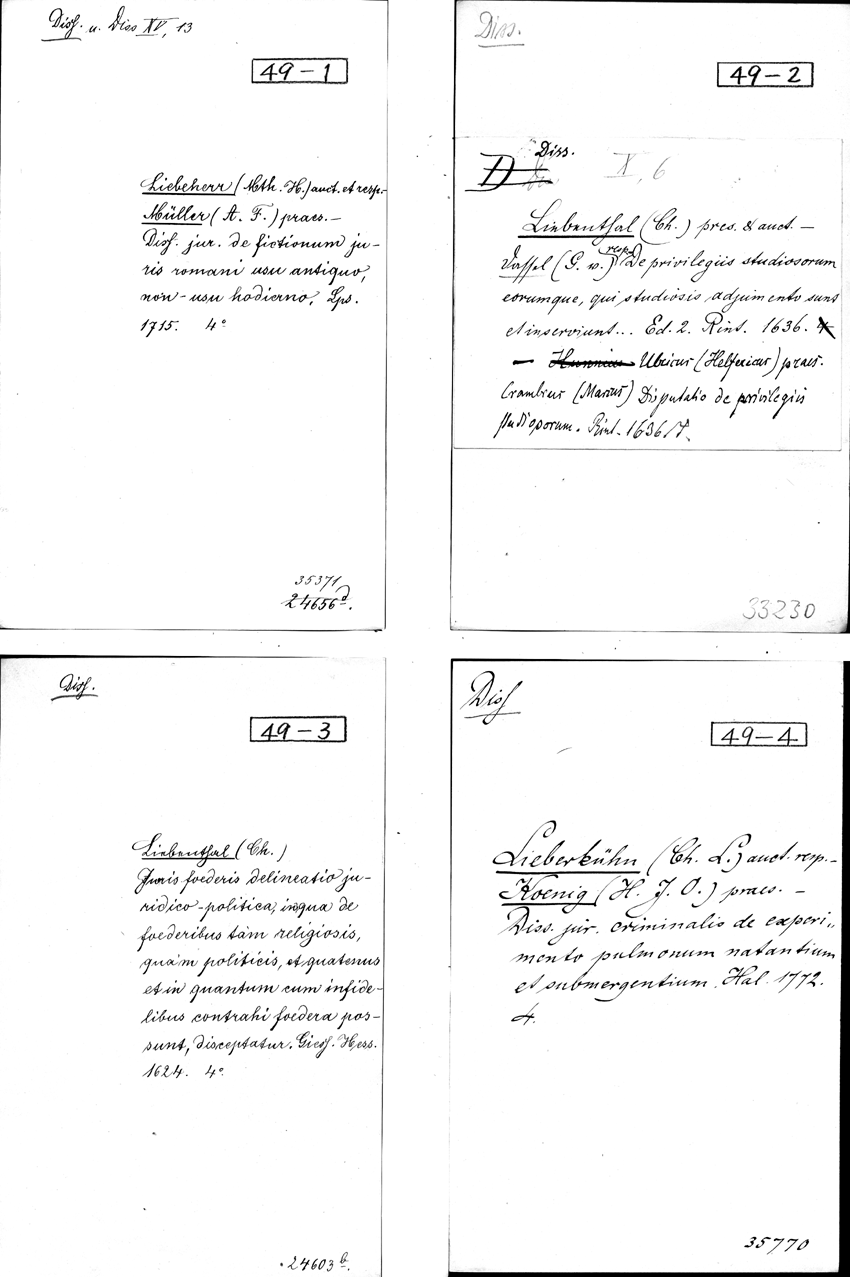 Diss. u. Diss XV, 13
49-1
Liebeherr (Mth. H.) auct. et resp.-
Müller (A. F.) praes. -
Diss. jur. de fictionum ju-
ris romani usu antiquo,
non-usu hodierno, Lps.
1715. 4°
35371
24656d.
Diss.
49-2
D Diss.
X, 6
Liebenthal (Ch.) pres. & auct. -
(G. v.) resp. De privilegiis studiosorum
eorumque, qui studiosis adjumento sunt
et inserviunt... Ed. 2. Rint. 1636. 4
- Hunnius Ulricus (Helfericus) praes.
(Marcus) Disputatio de privilegiis
studiosorum. Rint. 1636
33230
Diss.
49-3
Liebenthal (Ch.)
Juris foederis delineatio ju-
ridico-politica, in qua de
foederibus tàm religiosis,
quàm politicis, et quatenus
et in quantum cum infide-
libus contrahi foedera pos-
sunt, disceptatur. Giess. Hess.
1624. 4°
24603b.
Diss
49-4
Lieberkühn (Ch. L.) auct. resp.-
Koenig (H. J. O.) praes. -
Diss. jur. criminalis de experi„
mento pulmonum natantium
et submergentium. Hal. 1772.
4.
35770